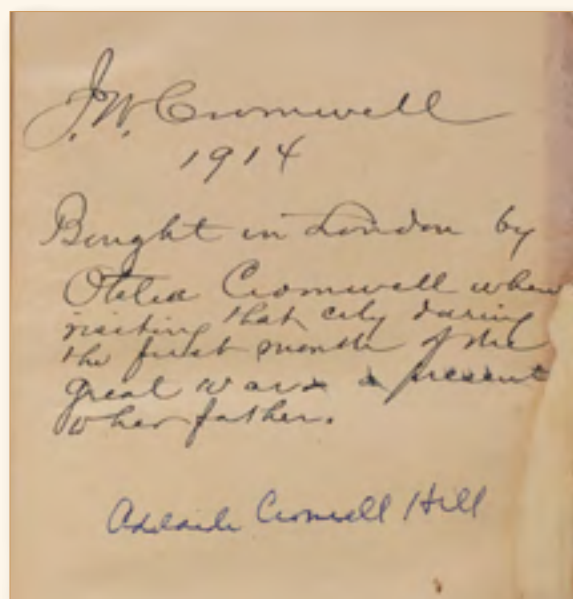 J. W. Cromwell
1914
Bought in London by
Otelia Cromwell when
visiting that city during
the first month of the
great war a present
to her father.
Adelaide Cromwell Hill